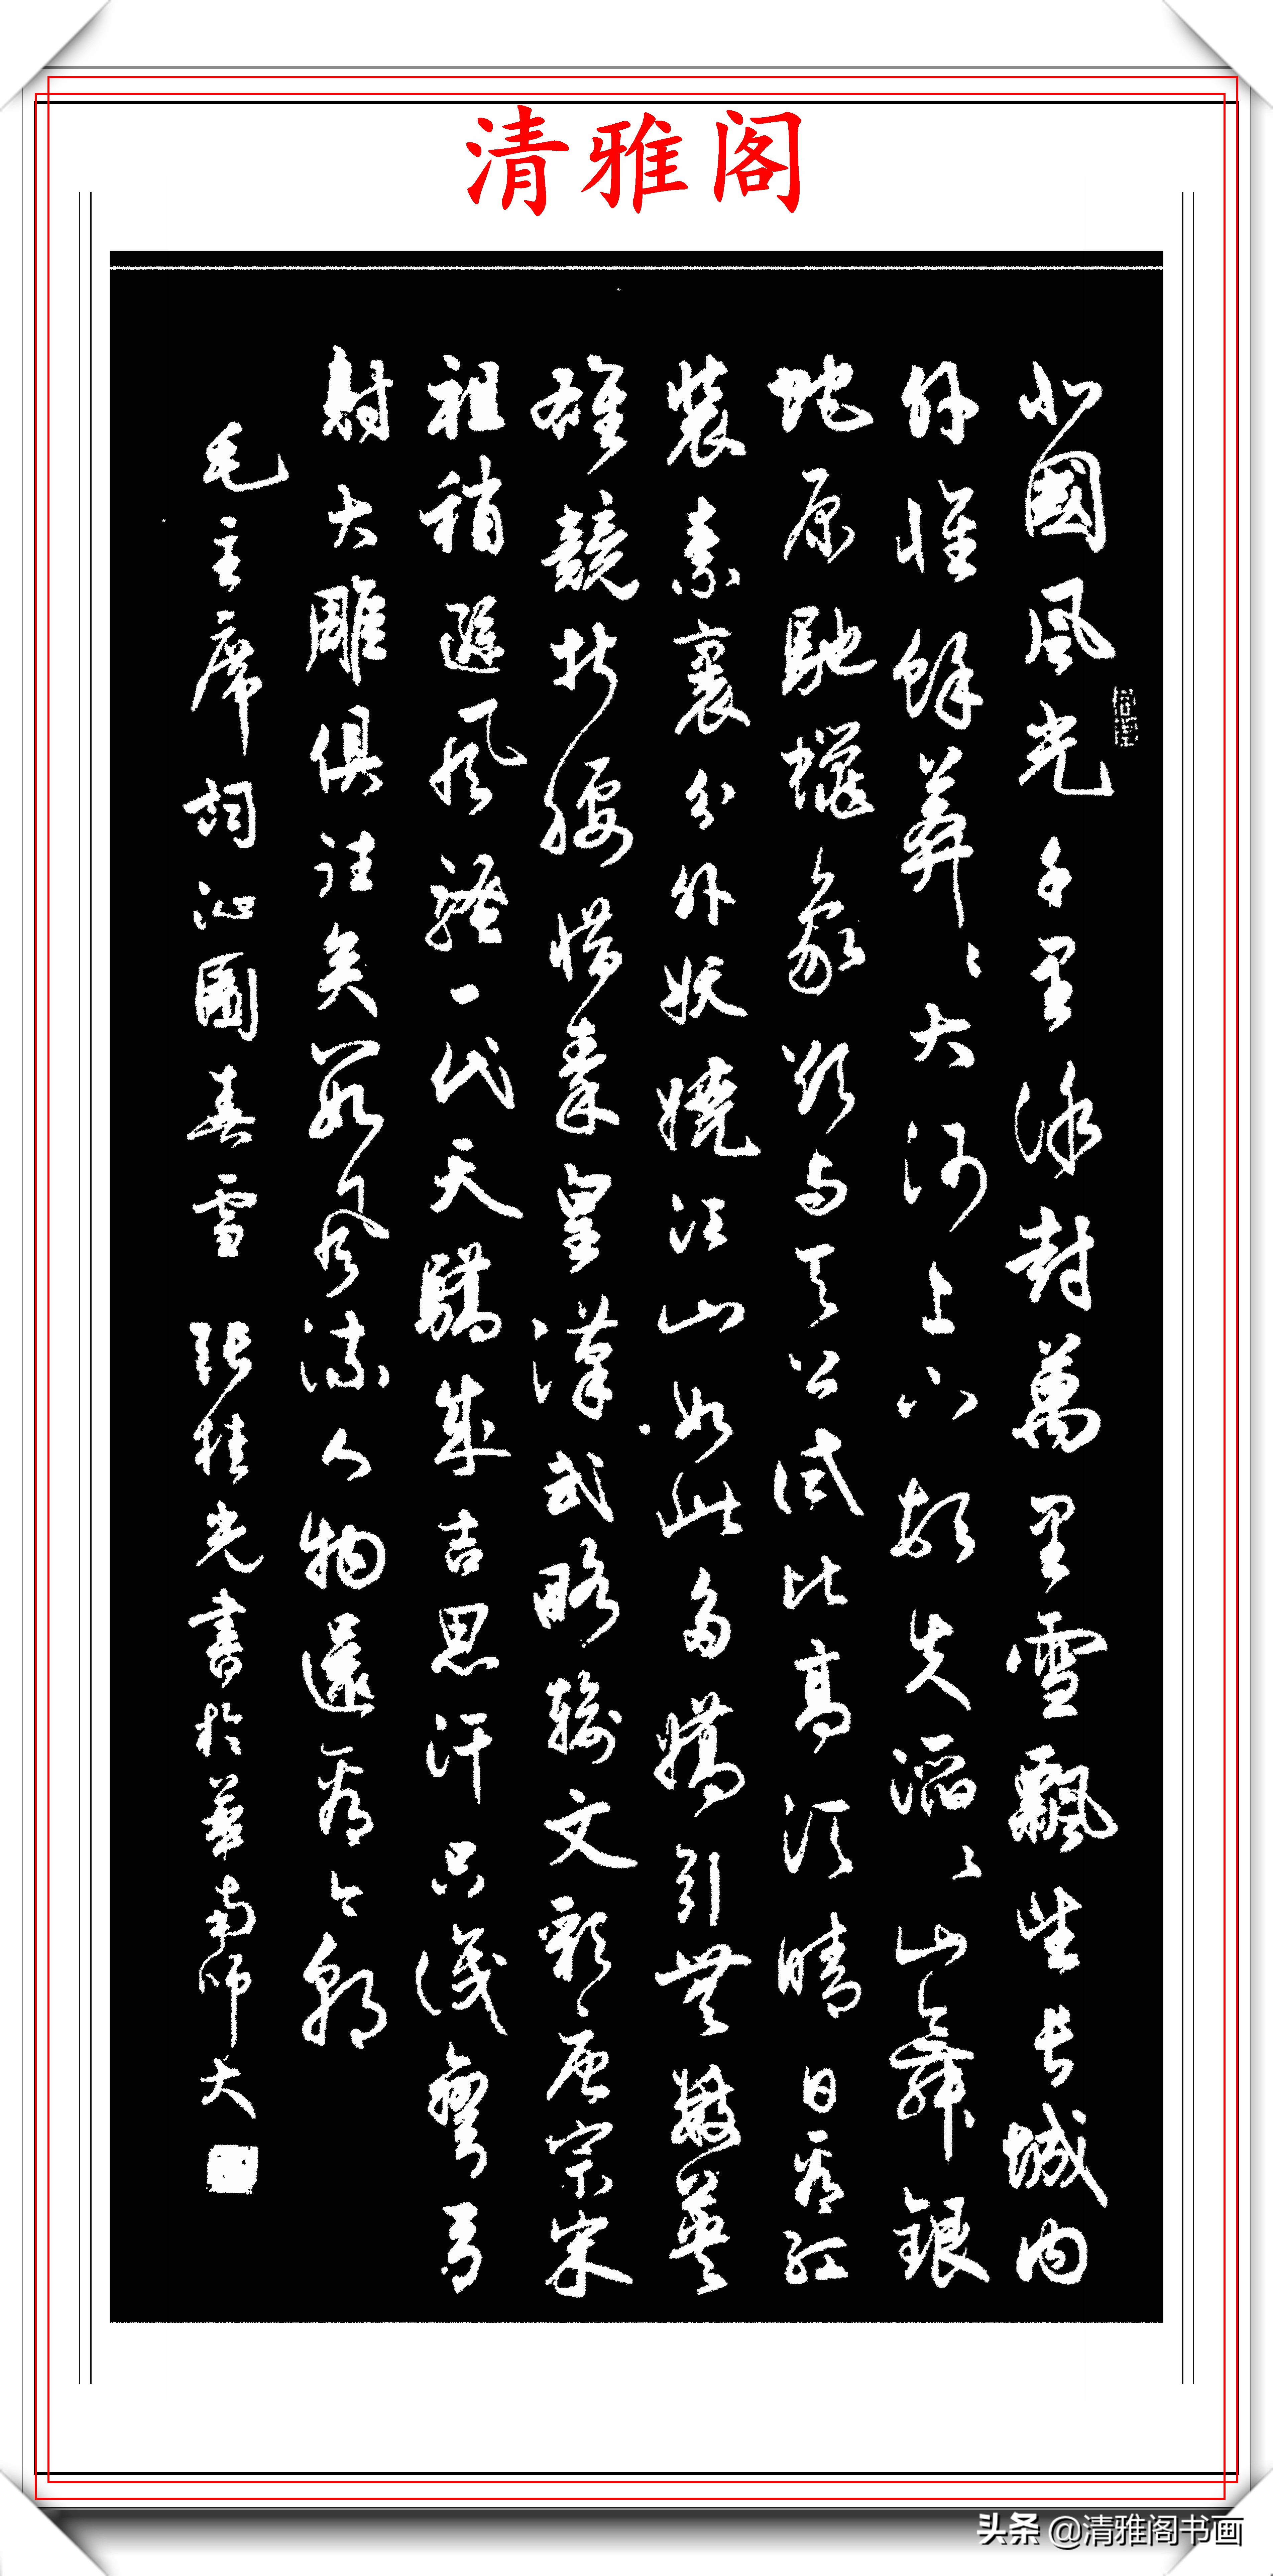 清雅阁
北國風光千里冰封萬里雪飄望長城內
外惟餘莽〻大河上下頓失滔〻山舞銀
蛇原馳蠟象欲與天公試比高須晴日看紅
裝素裹分外妖嬈江山如此多嬌引無數英
雄競折腰惜秦皇漢武略輸文彩唐宗宋
祖稍遜風騷一代天驕成吉思汗只識彎弓
射大雕俱往矣數風流人物還看今朝
毛主席詞沁園春雪 張桂光書於華南師大
头条 @清雅阁书画